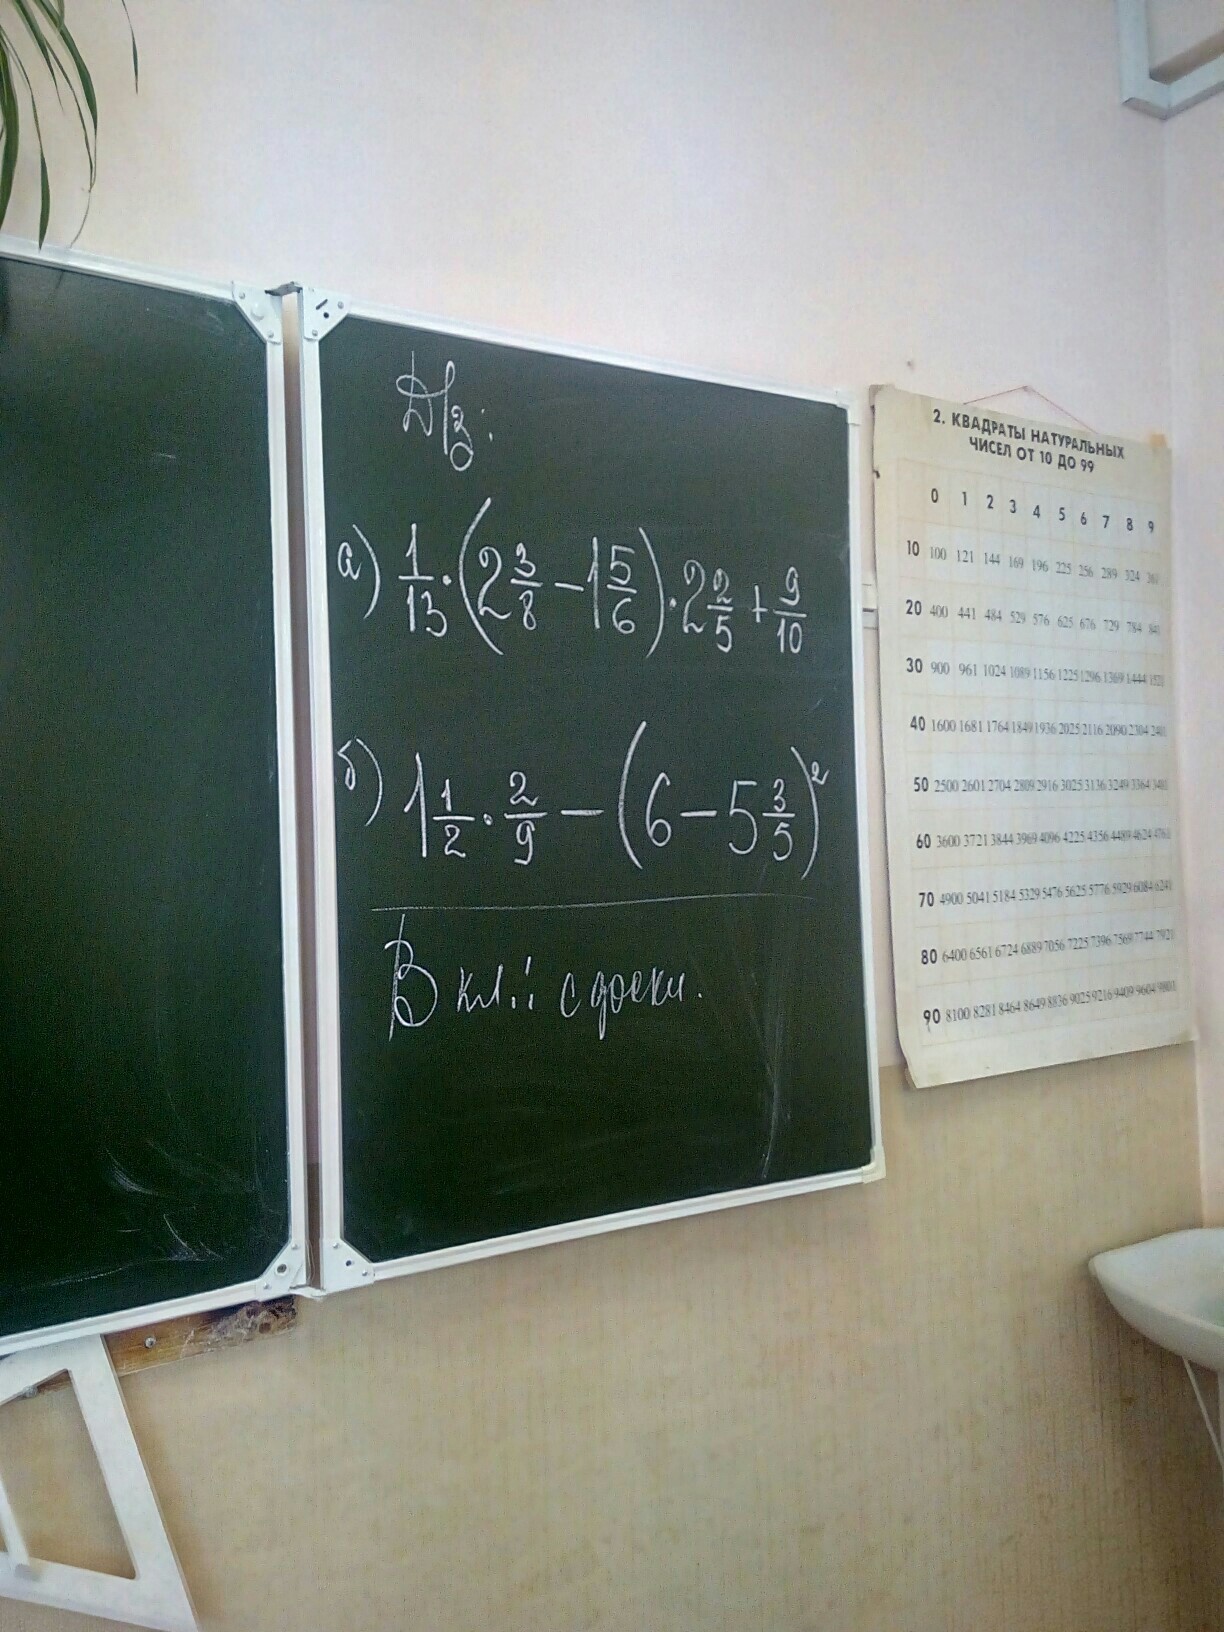 Д/з:
а) 1/13 · (2 3/8 − 1 5/6) · 2 2/5 + 9/10
б) 1 1/2 · 2/9 − (6 − 5 3/5)²
В кл.: с доски.
2. КВАДРАТЫ НАТУРАЛЬНЫХ
ЧИСЕЛ ОТ 10 ДО 99
0 1 2 3 4 5 6 7 8 9
10 100 121 144 169 196 225 256 289 324 361
20 400 441 484 529 576 625 676 729 784 841
30 900 961 1024 1089 1156 1225 1296 1369 1444 1521
40 1600 1681 1764 1849 1936 2025 2116 2090 2304 2401
50 2500 2601 2704 2809 2916 3025 3136 3249 3364 3481
60 3600 3721 3844 3969 4096 4225 4356 4489 4624 4761
70 4900 5041 5184 5329 5476 5625 5776 5929 6084 6241
80 6400 6561 6724 6889 7056 7225 7396 7569 7744 7921
90 8100 8281 8464 8649 8836 9025 9216 9409 9604 9801